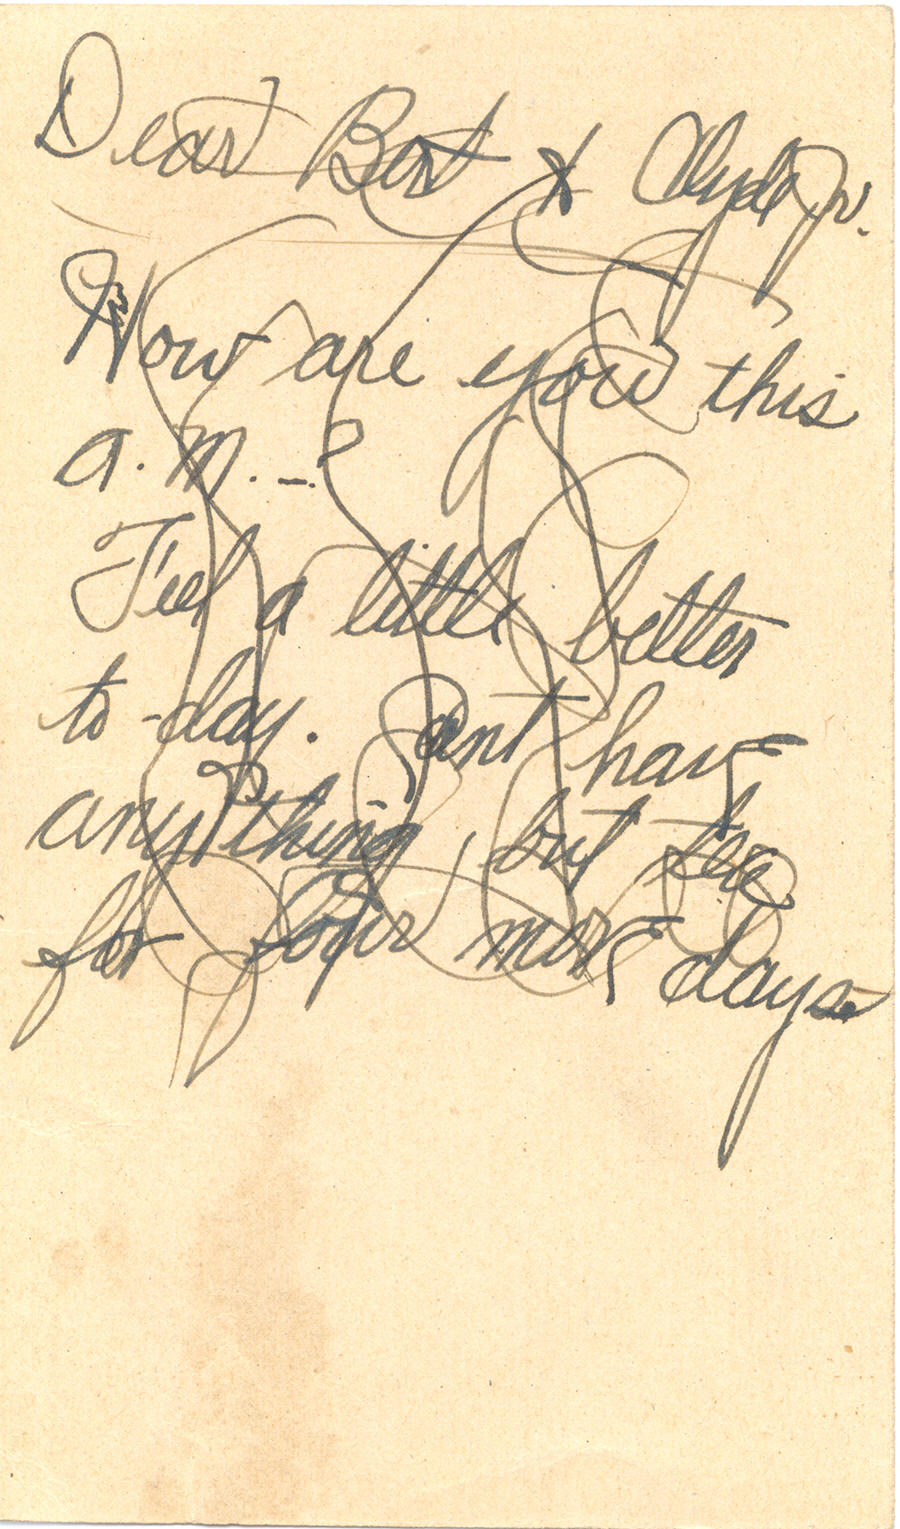 Dear Bert & Clyde Jr.
How are you this
a.m. -?
Feel a little better
to-day. Cant have
anything, but ice
for four more days